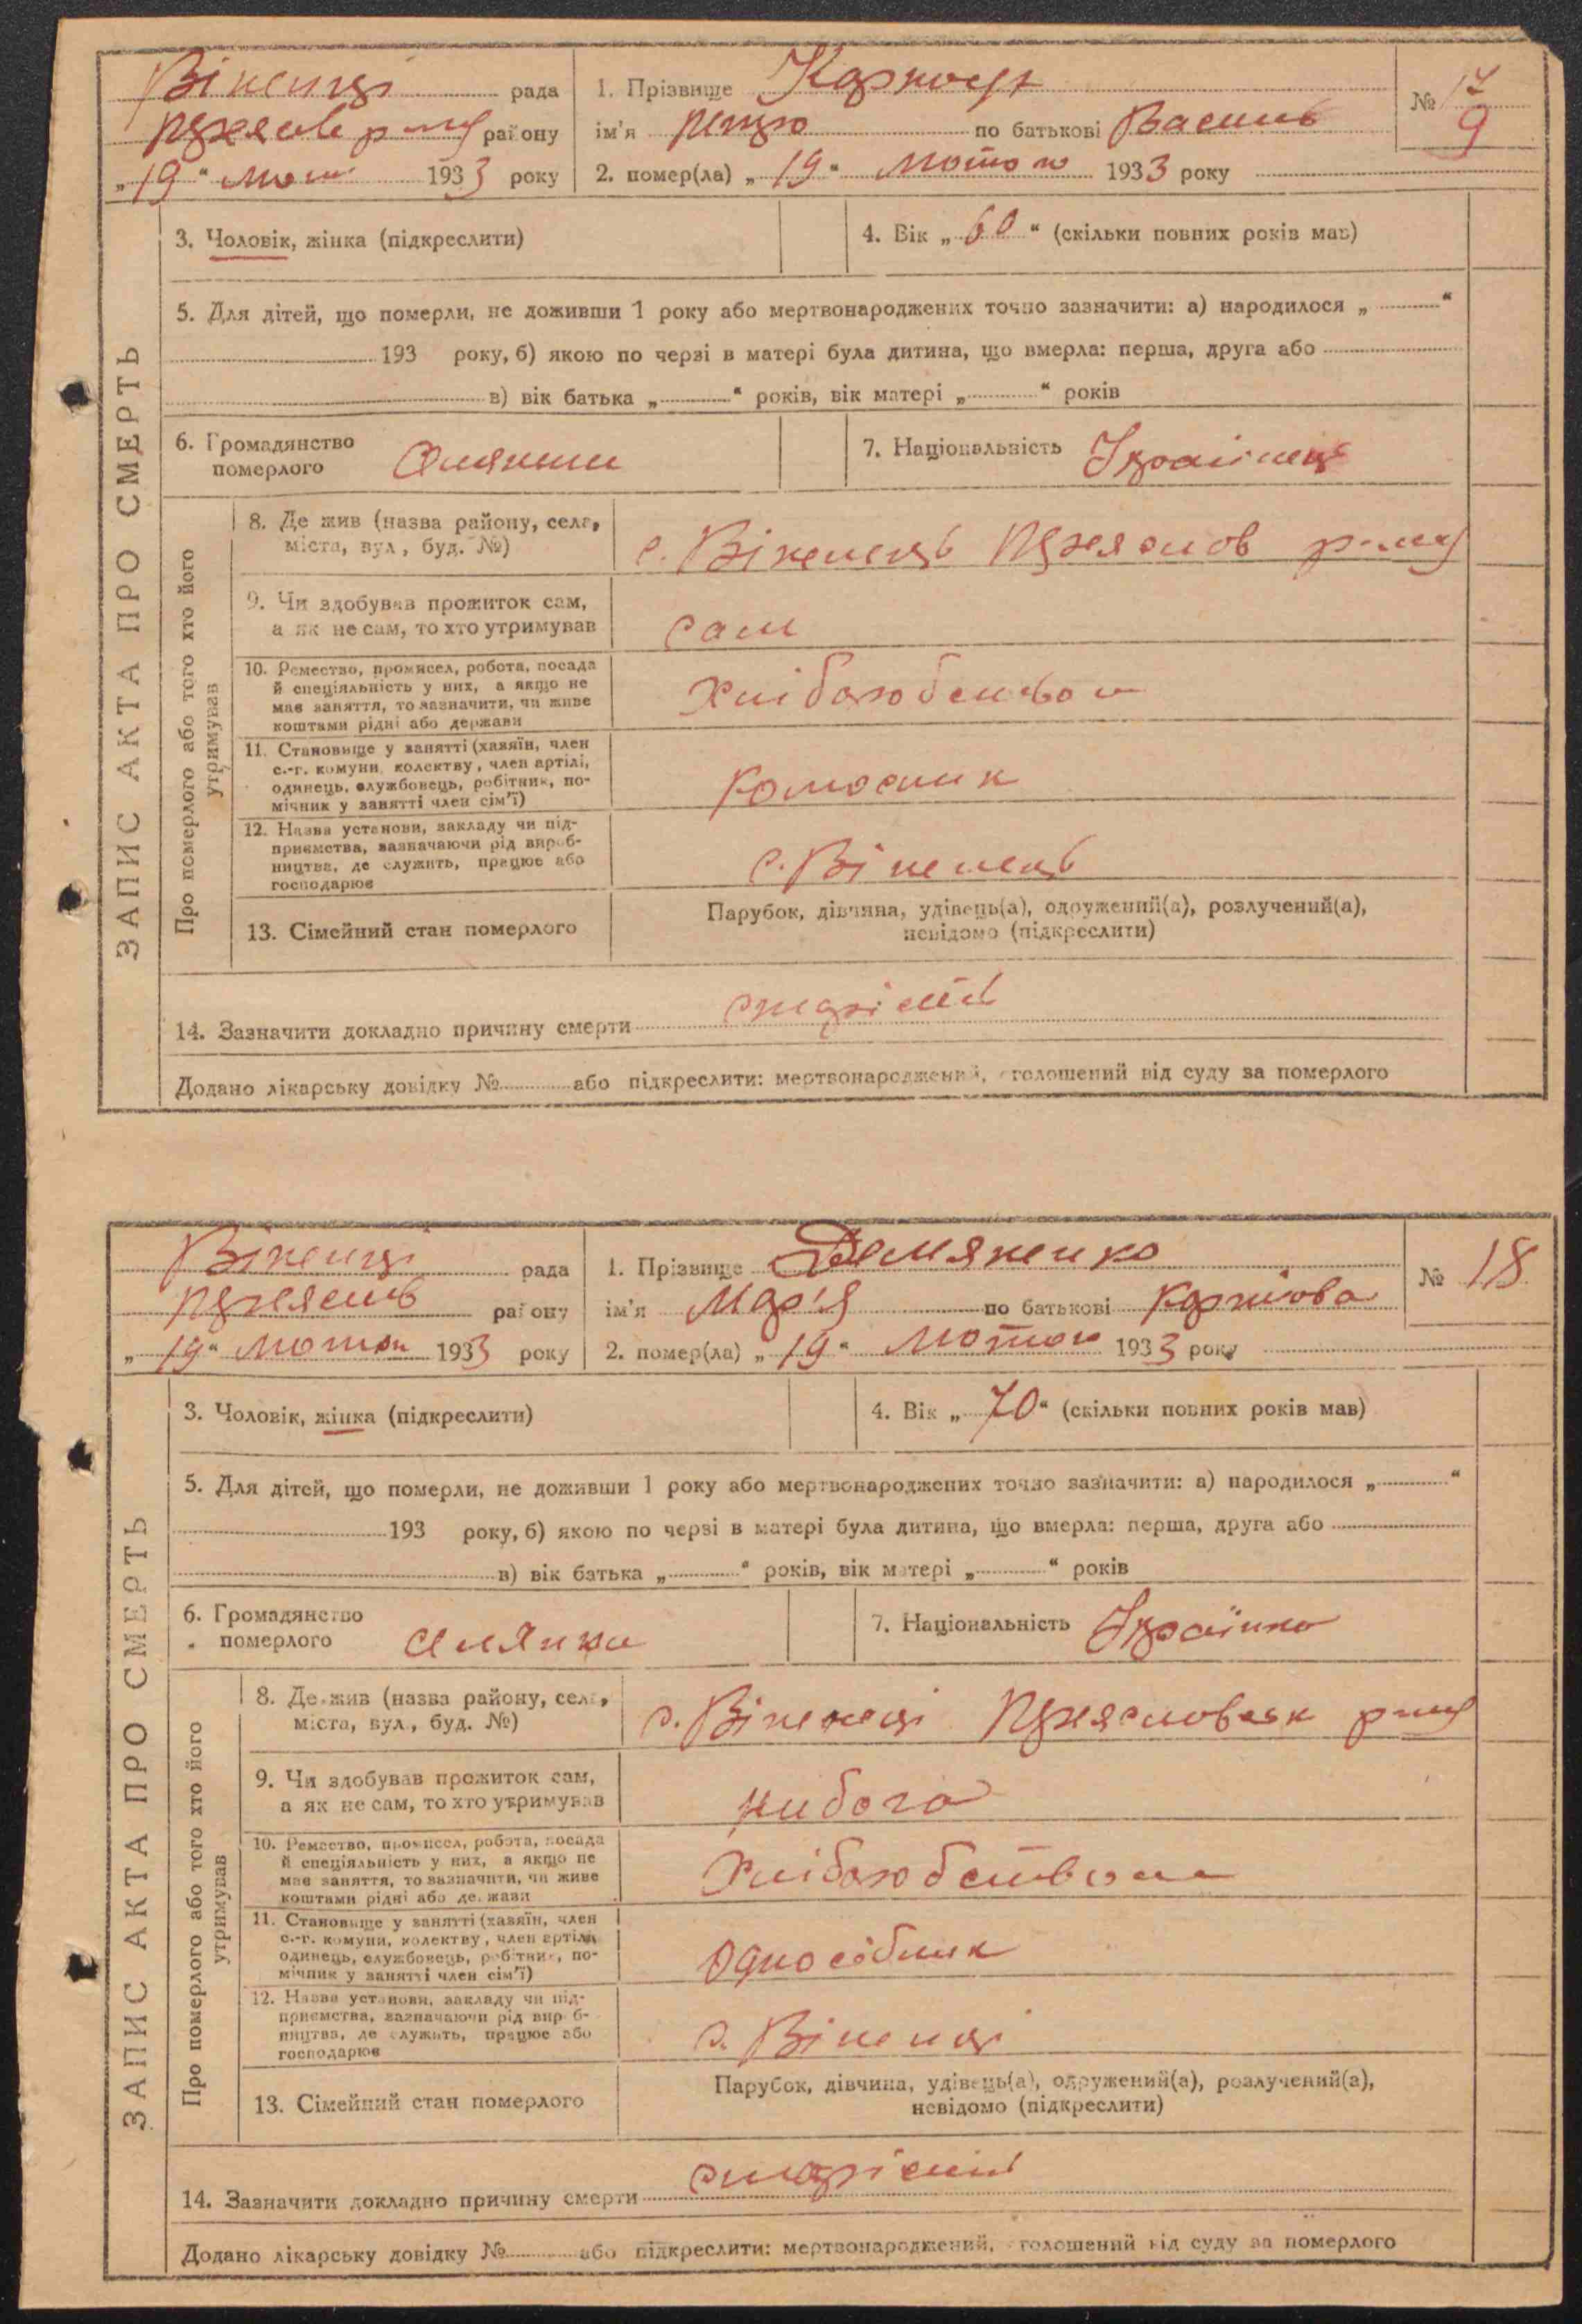 Віненці рада
району
„19“ Лют 1933 року
1. Прізвище
ім'я Петро по батькові Васильів
2. помер(ла) „19“ Лютого 1933 року
№ 17
9
ЗАПИС АКТА ПРО СМЕРТЬ
3. Чоловік, жінка (підкреслити)
4. Вік „60“ (скільки повних років мав)
5. Для дітей, що померли, не доживши 1 року або мертвонароджених точно зазначити: а) народилося „ “
193 року, б) якою по черзі в матері була дитина, що вмерла: перша, друга або
в) вік батька „ “ років, вік матері „ “ років
6. Громадянство
померлого
7. Національність Українець
Про померлого або того хто його
утримував
8. Де жив (назва району, села,
міста, вул., буд. №)
с. Віненець
9. Чи здобував прожиток сам,
а як не сам, то хто утримував
сам
10. Ремество, промисел, робота, посада
й спеціяльність у них, а якщо не
має заняття, то зазначити, чи живе
коштами рідні або держави
Хліборобством
11. Становище у занятті (хазяїн, член
с.-г. комуни, колектву, член артілі,
одинець, службовець, робітник, по-
мічник у занятті член сім'ї)
Колгосник
12. Назва установи, закладу чи під-
приємства, зазначаючи рід вироб-
ництва, де служить, працює або
господарює
с. Віненець
13. Сімейний стан померлого
Парубок, дівчина, удівець(а), одружений(а), розлучений(а),
невідомо (підкреслити)
14. Зазначити докладно причину смерти старість
Додано лікарську довідку № або підкреслити: мертвонароджений, оголошений від суду за померлого
Віненці рада
району
„19“ Лютого 1933 року
1. Прізвище Демяненко
ім'я Мар'я по батькові Карпова
2. помер(ла) „19“ Лютого 1933 року
№ 18
ЗАПИС АКТА ПРО СМЕРТЬ
3. Чоловік, жінка (підкреслити)
4. Вік „70“ (скільки повних років мав)
5. Для дітей, що померли, не доживши 1 року або мертвонароджених точно зазначити: а) народилося „ “
193 року, б) якою по черзі в матері була дитина, що вмерла: перша, друга або
в) вік батька „ “ років, вік матері „ “ років
6. Громадянство
померлого
7. Національність Українка
Про померлого або того хто його
утримував
8. Де жив (назва району, села,
міста, вул., буд. №)
с. Віненці
9. Чи здобував прожиток сам,
а як не сам, то хто утримував
10. Ремество, промисел, робота, посада
й спеціяльність у них, а якщо не
має заняття, то зазначити, чи живе
коштами рідні або держави
Хліборобством
11. Становище у занятті (хазяїн, член
с.-г. комуни, колектву, член артілі,
одинець, службовець, робітник, по-
мічник у занятті член сім'ї)
Односібник
12. Назва установи, закладу чи під-
приємства, зазначаючи рід вироб-
ництва, де служить, працює або
господарює
с. Віненці
13. Сімейний стан померлого
Парубок, дівчина, удівець(а), одружений(а), розлучений(а),
невідомо (підкреслити)
14. Зазначити докладно причину смерти старість
Додано лікарську довідку № або підкреслити: мертвонароджений, оголошений від суду за померлого